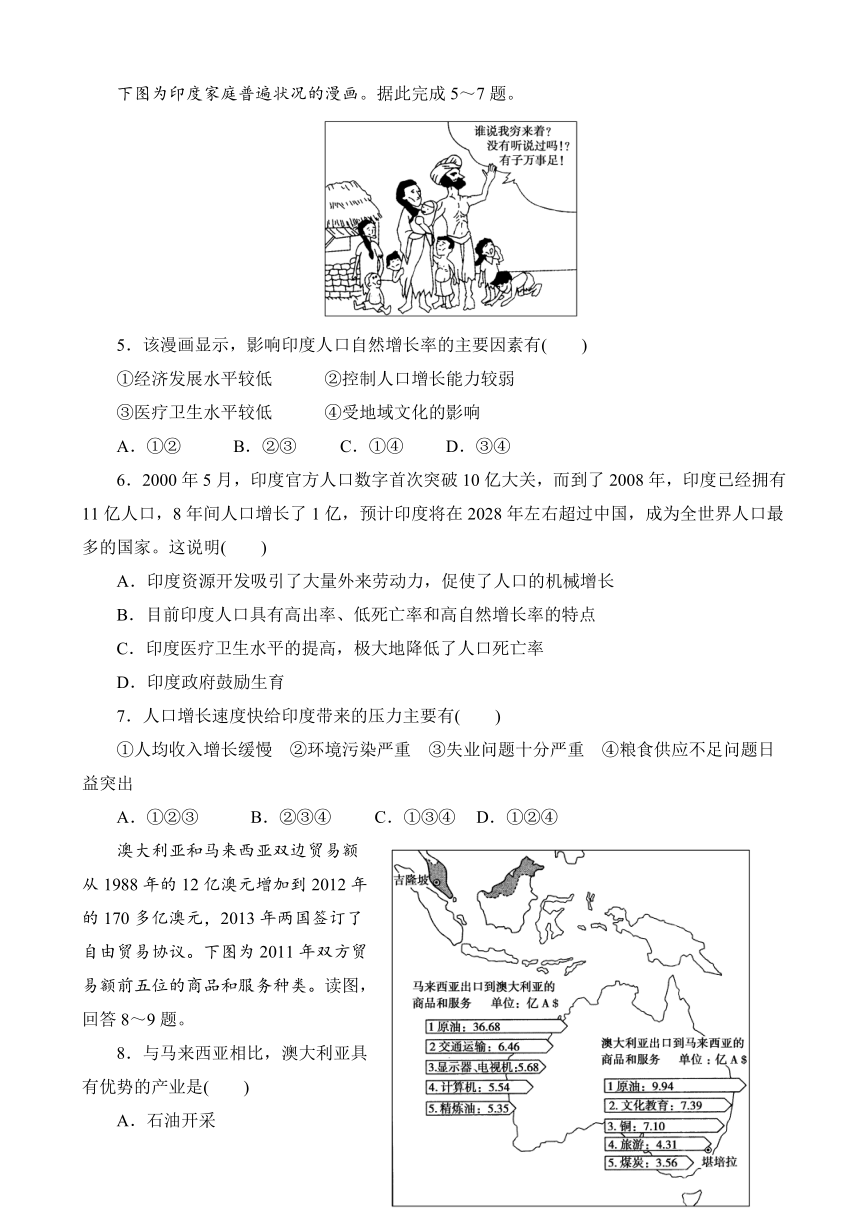 下图为印度家庭普遍状况的漫画。据此完成 5～7 题。
谁说我穷来着?
没有听说过吗!?
有子万事足!
5．该漫画显示，影响印度人口自然增长率的主要因素有(　　)
①经济发展水平较低　　②控制人口增长能力较弱
③医疗卫生水平较低　　④受地域文化的影响
A．①②　　B．②③　　C．①④　　D．③④
6．2000 年 5 月，印度官方人口数字首次突破 10 亿大关，而到了 2008 年，印度已经拥有
11 亿人口，8 年间人口增长了 1 亿，预计印度将在 2028 年左右超过中国，成为全世界人口最
多的国家。这说明(　　)
A．印度资源开发吸引了大量外来劳动力，促使了人口的机械增长
B．目前印度人口具有高出率、低死亡率和高自然增长率的特点
C．印度医疗卫生水平的提高，极大地降低了人口死亡率
D．印度政府鼓励生育
7．人口增长速度快给印度带来的压力主要有(　　)
①人均收入增长缓慢　②环境污染严重　③失业问题十分严重　④粮食供应不足问题日
益突出
A．①②③　　B．②③④　　C．①③④　D．①②④
澳大利亚和马来西亚双边贸易额
从 1988 年的 12 亿澳元增加到 2012 年
的 170 多亿澳元，2013 年两国签订了
自由贸易协议。下图为 2011 年双方贸
易额前五位的商品和服务种类。读图，
回答 8～9 题。
8．与马来西亚相比，澳大利亚具
有优势的产业是(　　)
A．石油开采
吉隆坡
马来西亚出口到澳大利亚的
商品和服务　单位：亿 A$
1 原油：36.68
2 交通运输：6.46
3.显示器、电视机:5.68
4. 计算机：5.54
5. 精炼油：5.35
澳大利亚出口到马来西亚的
商品和服务　单位：亿 A$
1 原油：9.94
2. 文化教育：7.39
3. 铜：7.10
4. 旅游：4.31
5. 煤炭：3.56
堪培拉